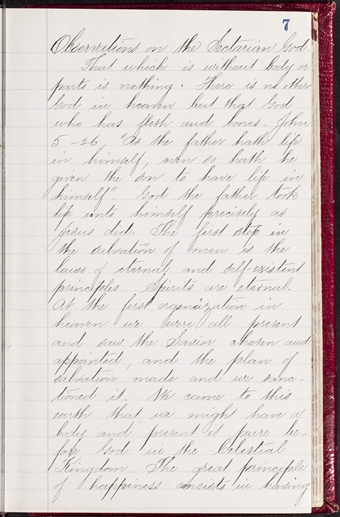 7
Observations on the Sectarian God.
That which is without body or
parts is nothing. There is no other
God in heaven but that God
who has flesh and bones. John
5-26, "As the father hath life
in himself, even so hath he
given the son to have life in
himself". God the father took
life unto himself precisely as
Jesus did. The first step in
the salvation of men is the
laws of eternal and self-existent
principles. Spirits are eternal.
At the first organization in
heaven we were all present
and saw the Savior chosen and
appointed, and the plan of
salvation made and we sanc-
tioned it. We came to this
earth that we might have a
body and present it pure be-
fore God in the Celestial
Kingdom. The great principle
of happiness consists in having